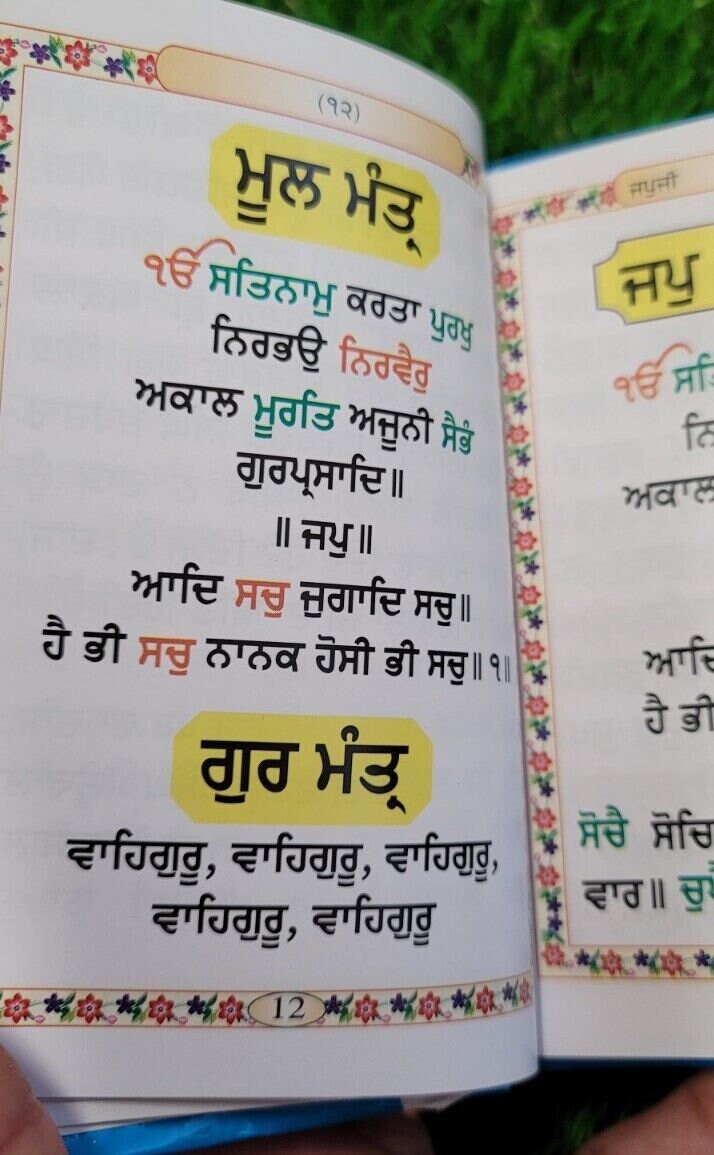 (੧੨)
ਮੂਲ ਮੰਤ੍ਰ
ੴ ਸਤਿਨਾਮੁ ਕਰਤਾ ਪੁਰਖੁ
ਨਿਰਭਉ ਨਿਰਵੈਰੁ
ਅਕਾਲ ਮੂਰਤਿ ਅਜੂਨੀ ਸੈਭੰ
ਗੁਰਪ੍ਰਸਾਦਿ॥
॥ ਜਪੁ॥
ਆਦਿ ਸਚੁ ਜੁਗਾਦਿ ਸਚੁ॥
ਹੈ ਭੀ ਸਚੁ ਨਾਨਕ ਹੋਸੀ ਭੀ ਸਚੁ॥ ੧॥
ਗੁਰ ਮੰਤ੍ਰ
ਵਾਹਿਗੁਰੂ, ਵਾਹਿਗੁਰੂ, ਵਾਹਿਗੁਰੂ,
ਵਾਹਿਗੁਰੂ, ਵਾਹਿਗੁਰੂ
12
ਜਪੁਜੀ
ਜਪੁ
ੴ ਸਤਿ
ਨਿ
ਅਕਾਲ
ਆਦਿ
ਹੈ ਭੀ
ਸੋਚੈ ਸੋਚਿ
ਵਾਰ॥ ਚੁਪੈ